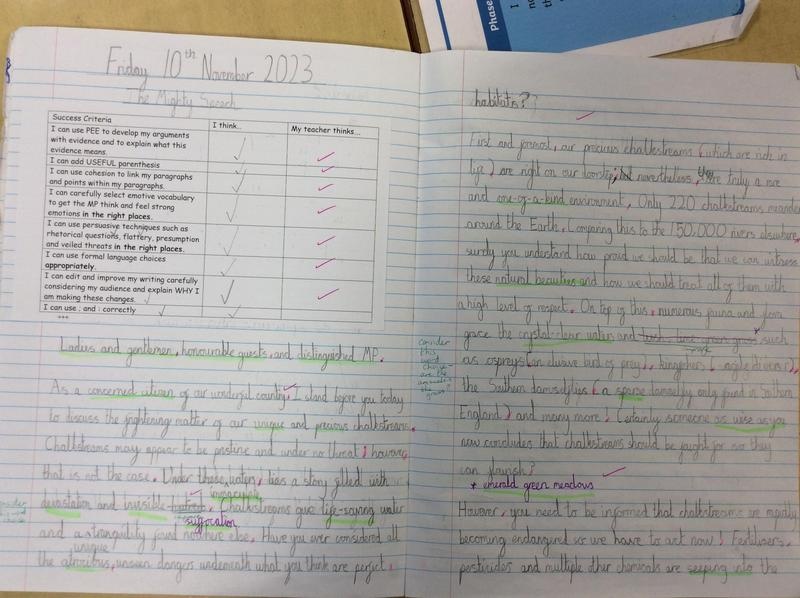 Phase
Friday 10th November 2023
The Mighty Speech
Success Criteria
I think...
My teacher thinks...
I can use PEE to develop my arguments
with evidence and to explain what this
evidence means.
I can add USEFUL parenthesis
I can use cohesion to link my paragraphs
and points within my paragraphs.
I can carefully select emotive vocabulary
to get the MP think and feel strong
emotions in the right places.
I can use persuasive techniques such as
rhetorical questions, flattery, presumption
and veiled threats in the right places.
I can use formal language choices
appropriately.
I can edit and improve my writing carefully
considering my audience and explain WHY I
am making these changes.
I can use ; and : correctly
Ladies and gentlemen, honourable guests, and distinguished MP.
As a concerned citizen of our wonderful country, I stand before you today
to discuss the frightening matter of our unique and precious chalkstreams.
Chalkstreams may appear to be pristine and under no threat; however,
that is not the case. Under these waters, lies a story filled with
devastation and invisible
suffocation
. Chalkstreams give life-saying water
and a tranquility found nowhere else. Have you ever considered all
unique
the atrocious, unseen dangers underneath what you think are perfect
habitats??
First and foremost, our precious chalkstreams (which are rich in
life) are right on our doorstep; nevertheless, they're truly a rare
and one-of-a-kind environment. Only 220 chalkstreams meander
around the Earth. Comparing this to the 150,000 rivers elsewhere,
surely you understand how proud we should be that we can witness
these natural beauties and how we should treat all of them with
a high level of respect. On top of this, numerous fauna and flora
grace the crystal-clear waters and lush, lime green grass such
consider
this
word
choice -
as ospreys (an elusive bird of prey), kingfishers (agile divers),
the Southern damselflies (a sparse damselfly only found in Southern
England) and many more! Certainly someone as wise as you
now concludes that chalkstreams should be fought for so they
can flourish?
* emerald green meadows
However, you need to be informed that chalkstreams are rapidly
becoming endangered so we have to act now! Fertilisers,
pesticides and multiple other chemicals are seeping into the